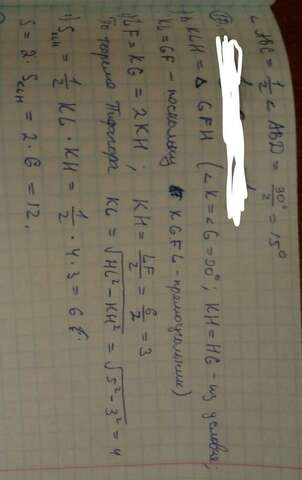 ∠ABC = 1/2 ∠ABD = 30°/2 = 15°
Δ KLH = Δ GFH (∠K = ∠G = 90°; KH = HG - из условия;
KL = GF - поскольку KGFL - прямоугольник)
LF = KG = 2KH; KH = LF/2 = 6/2 = 3
По теореме Пифагора KL = √(HL² - KH²) = √(5² - 3²) = 4
= 1/2 KL · KH = 1/2 · 4 · 3 = 6
S = 2 · S = 2 · 6 = 12.